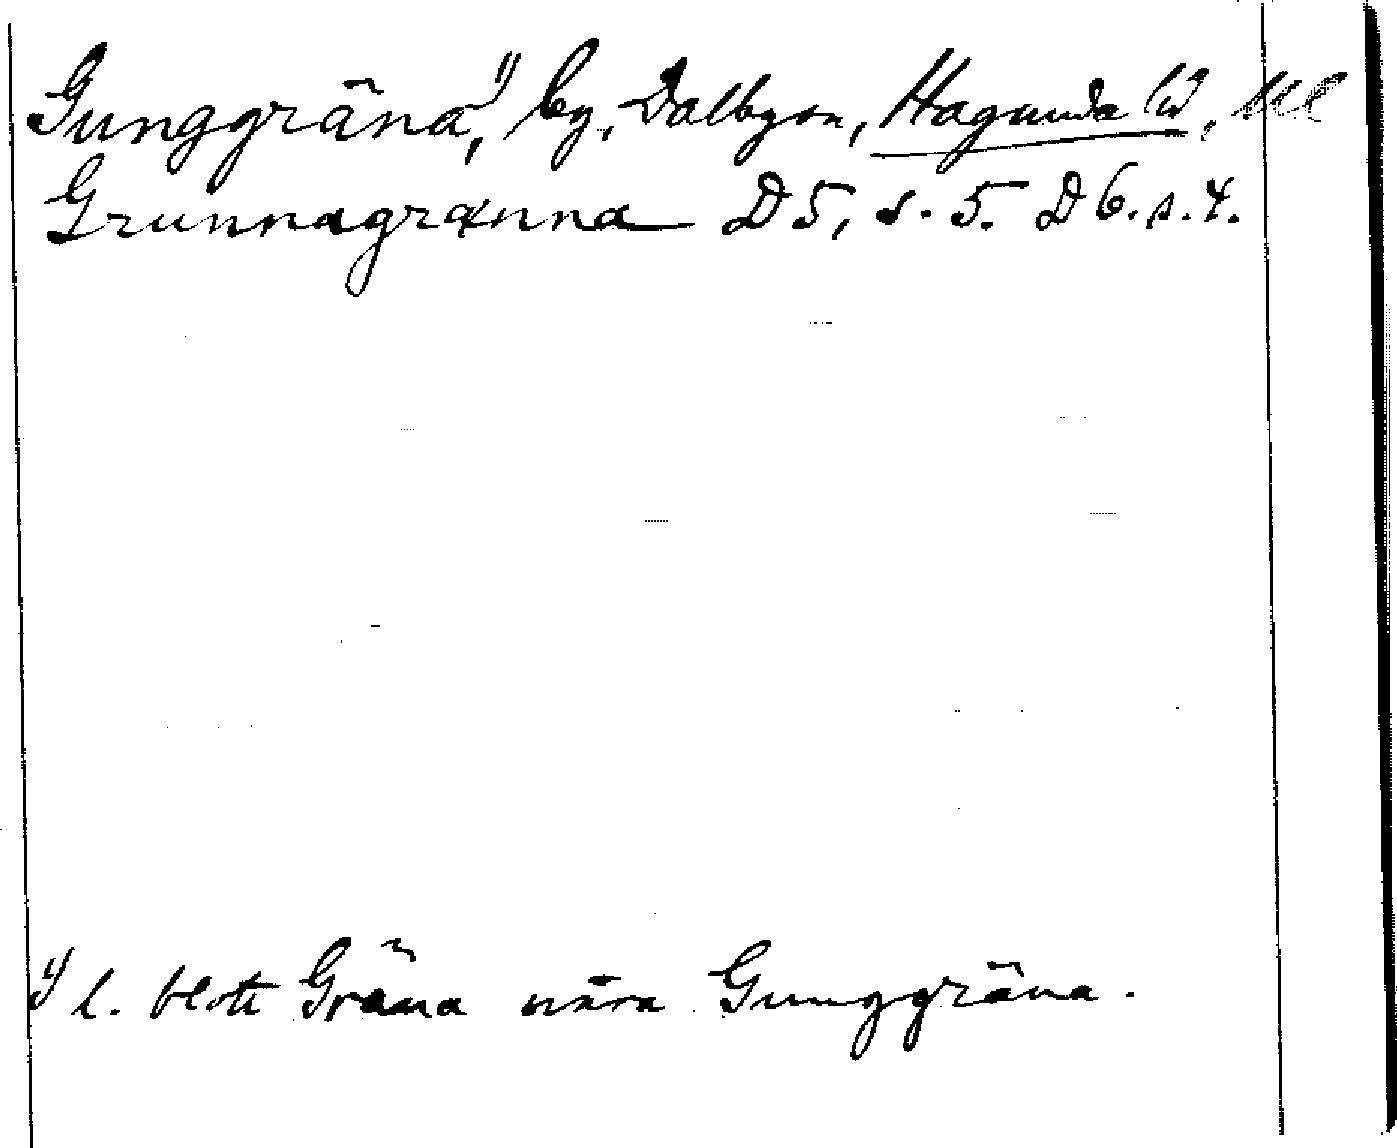 Gunggräna,¹⁾ by, Dalbysn, Hagunda hd, Upl
Grunnagrænna D 5, s. 5. D 6. s. 4.
¹⁾ l. blott Gräna nära Gunggräna.